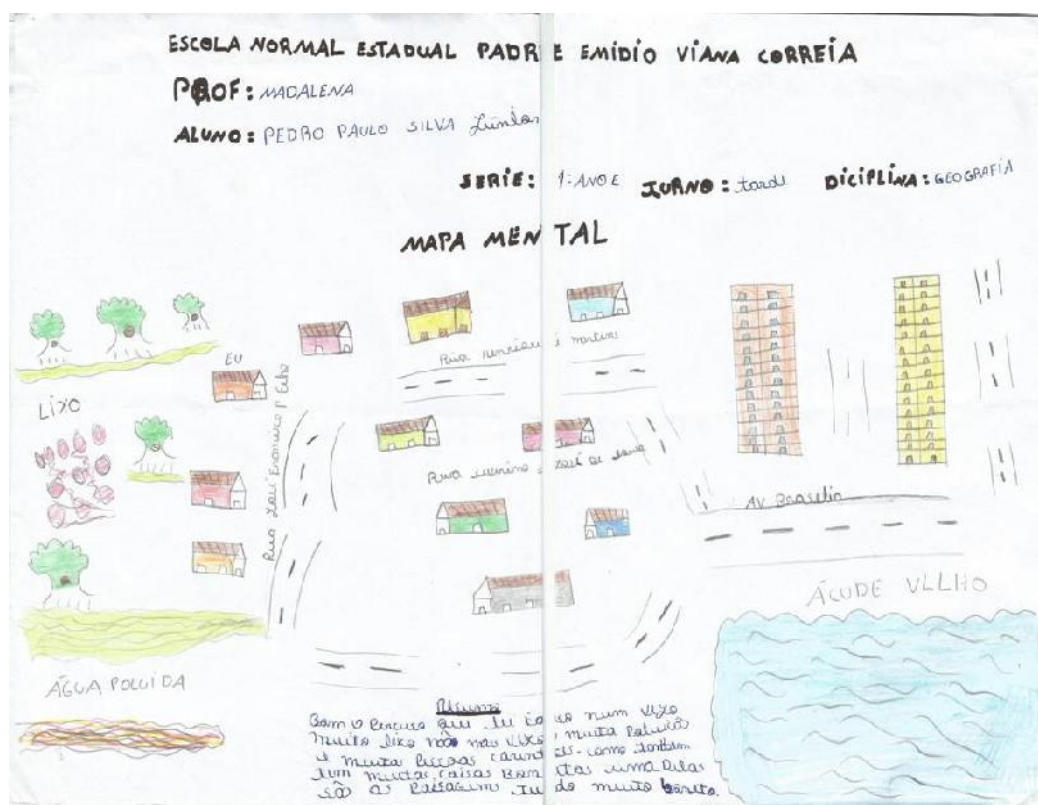 ESCOLA NORMAL ESTADUAL PADRE EMIDIO VIANA CORREIA
PROF: MADALENA
ALUNO: PEDRO PAULO SILVA
SERIE: 1º ANO E TURNO: tarde DICIPLINA: GEOGRAFIA
MAPA MENTAL
EU
Rua
martins
LIXO
Rua José
Rua José de
AV Brasilia
ÁCUDE VELHO
ÁGUA POLUIDA
Resumo
Bom o percuso que eu num vejo
muito lixo não mas vejo muita Poluição
e muita Pessoas como tambem
tem muitas coisas Bonitas uma Delas
são as Paisagem tudo muito bonito.